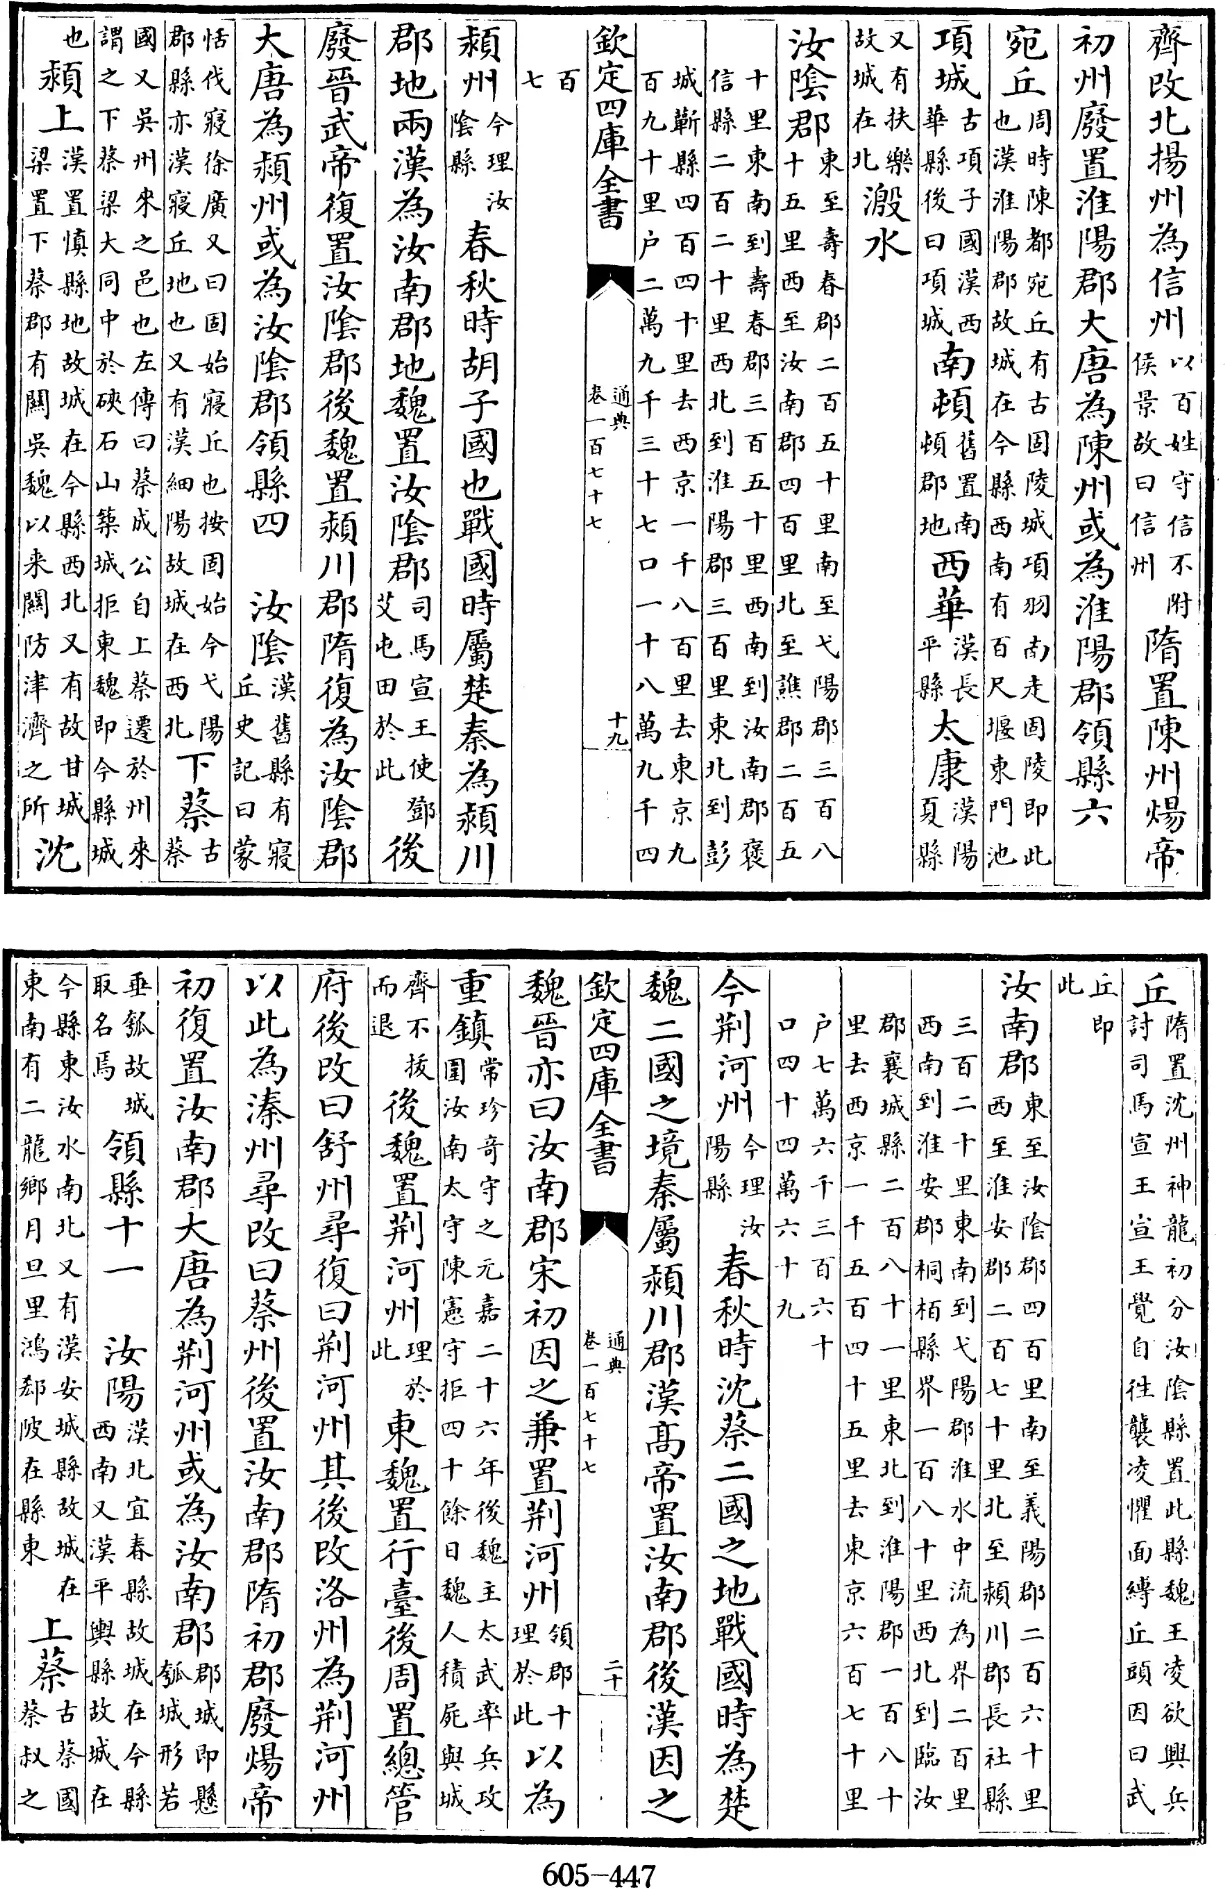 齊改北揚州為信州以百姓守信不附侯景故曰信州隋置陳州煬帝
初州廢置淮陽郡大唐為陳州或為淮陽郡領縣六
宛丘周時陳都宛丘有古固陵城項羽南走固陵即此也漢淮陽郡故城在今縣西南有百尺堰東門池
項城古項子國漢西華縣後曰項城南頓舊置南頓郡地西華漢長平縣太康漢陽夏縣
又有扶樂故城在北溵水
汝陰郡東至壽春郡二百五十里南至弋陽郡三百八十五里西至汝南郡四百里北至譙郡二百五
十里東南到壽春郡三百五十里西南到汝南郡褒信縣二百二十里西北到淮陽郡三百里東北到彭
城蘄縣四百四十里去西京一千八百里去東京九百九十里户二萬九千三十七口一十八萬九千四
欽定四庫全書 通典卷一百七十七 十九
百七
潁州今理汝陰縣春秋時胡子國也戰國時屬楚秦為潁川
郡地兩漢為汝南郡地魏置汝陰郡司馬宣王使鄧艾屯田於此後
廢晉武帝復置汝陰郡後魏置潁川郡隋復為汝陰郡
大唐為潁州或為汝陰郡領縣四 汝陰漢舊縣有寢丘史記曰蒙
恬伐寢徐廣又曰固始寢丘也按固始今弋陽郡縣亦漢寢丘地也又有漢細陽故城在西北下蔡古蔡
國又吳州來之邑也左傳曰蔡成公自上蔡遷於州來謂之下蔡梁大同中於硤石山築城拒東魏即今縣城
也潁上漢置慎縣地故城在今縣西北又有故甘城梁置下蔡郡有關吳魏以来關防津濟之所沈
丘隋置沈州神龍初分汝陰縣置此縣魏王凌欲興兵討司馬宣王宣王覺自往襲凌懼面縛丘頭因曰武
丘即此
汝南郡東至汝陰郡四百里南至義陽郡二百六十里西至淮安郡二百七十里北至潁川郡長社縣
三百二十里東南到弋陽郡淮水中流為界二百里西南到淮安郡桐栢縣界一百八十里西北到臨汝
郡襄城縣二百八十一里東北到淮陽郡一百八十里去西京一千五百四十五里去東京六百七十里
户七萬六千三百六十口四十四萬六十九
今荆河州今理汝陽縣春秋時沈蔡二國之地戰國時為楚
魏二國之境秦屬潁川郡漢髙帝置汝南郡後漢因之
欽定四庫全書 通典卷一百七十七 二十
魏晉亦曰汝南郡宋初因之兼置荆河州領郡十理於此以為
重鎮常珍奇守之元嘉二十六年後魏主太武率兵攻圍汝南太守陳憲守拒四十餘日魏人積屍與城
齊不拔而退後魏置荆河州理於此東魏置行臺後周置總管
府後改曰舒州尋復曰荆河州其後改洛州為荆河州
以此為溱州尋改曰蔡州後置汝南郡隋初郡廢煬帝
初復置汝南郡大唐為荆河州或為汝南郡郡城即懸瓠城形若
垂瓠故城取名焉領縣十一 汝陽漢北宜春縣故城在今縣西南又漢平輿縣故城在
今縣東汝水南北又有漢安城縣故城在東南有二龍鄉月旦里鴻郄陂在縣東上蔡古蔡國蔡叔之
605-447